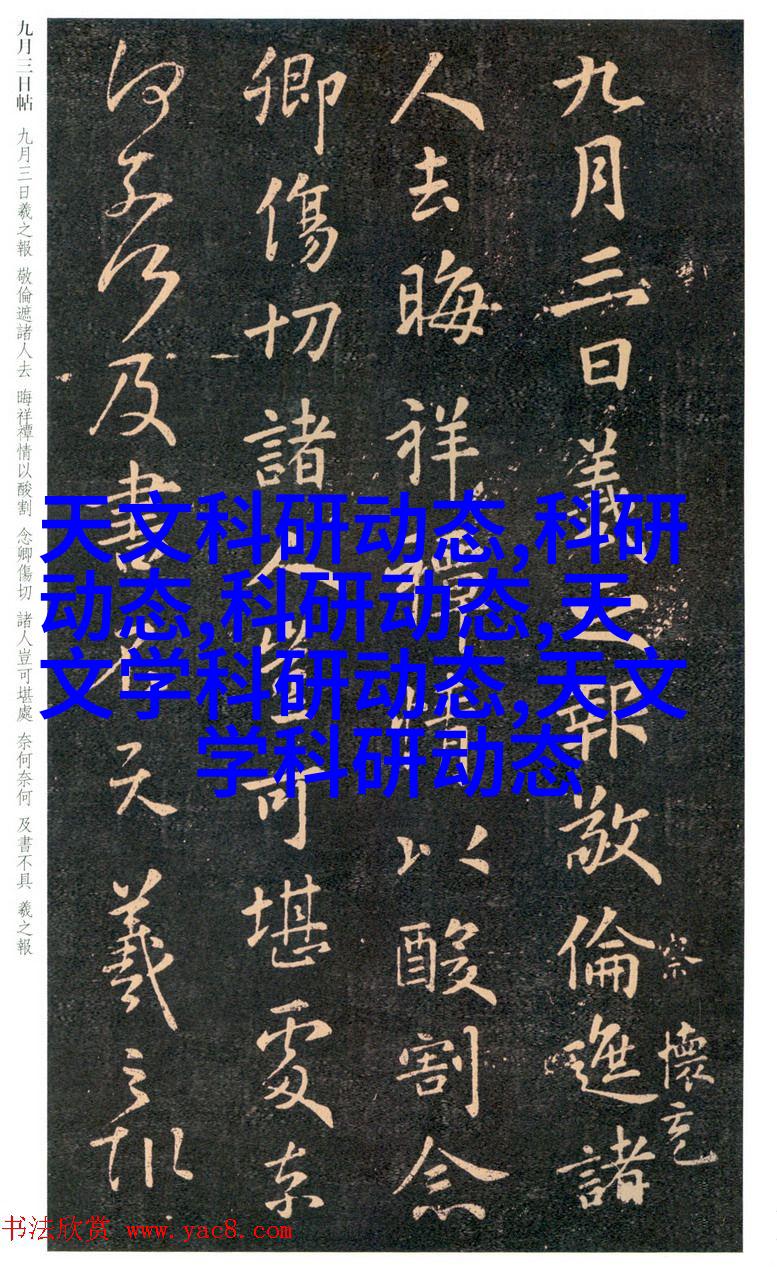 九月三日帖 九月三日羲之報 敬倫遮諸人去 晦祥禫情以酸割 念卿傷切 諸人豈可堪處 奈何奈何 及書不具 羲之報
九月三日羲之報敬倫遮諸
察 懷充
人去晦祥禫情以酸割念
卿傷切諸人豈可堪處奈
何奈何及書不具羲之報
天文科研动态,科研
动态,科研动态,天
文学科研动态,天文
学科研动态
书法欣赏 www.yac8.com